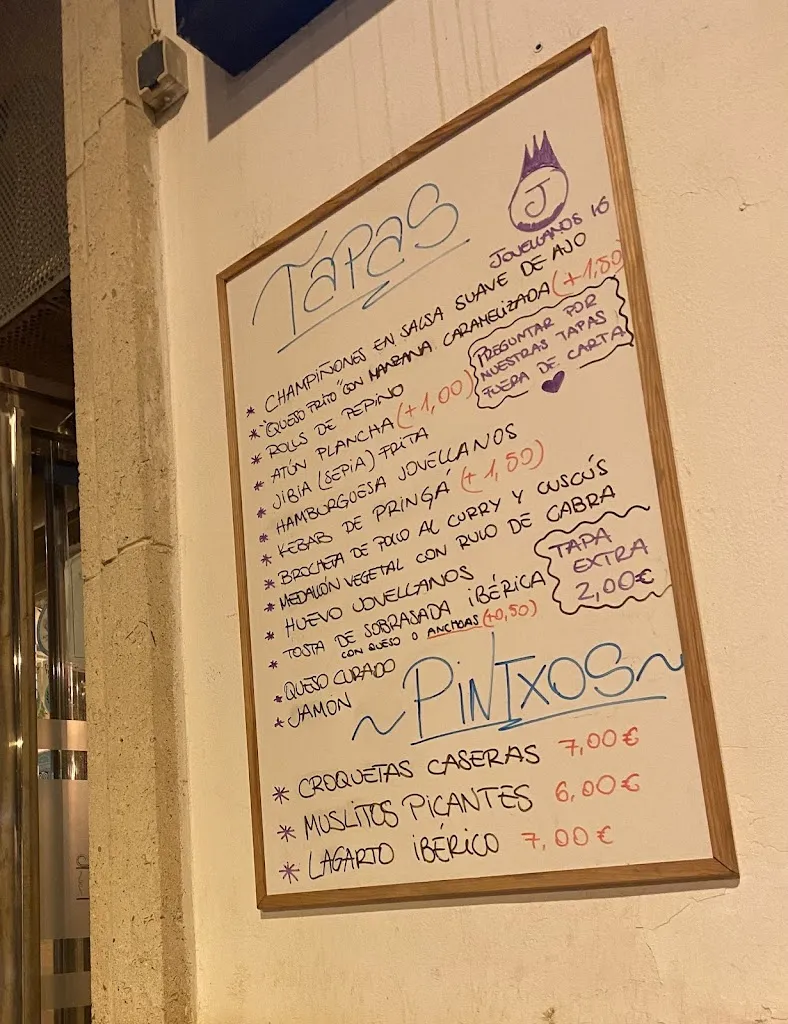 TAPAS
J
JOVELLANOS 16
* CHAMPIÑONES EN SALSA SUAVE DE AJO
* "QUESO FRITO" CON MANZANA CARAMELIZADA (+1,50)
* ROLLS DE PEPINO
* ATÚN PLANCHA (+1,00)
* JIBIA (SEPIA) FRITA
* HAMBURGUESA JOVELLANOS
* KEBAB DE PRINGÁ (+1,50)
* BROCHETA DE POLLO AL CURRY Y CUSCÚS
* MEDALLÓN VEGETAL CON RULO DE CABRA
* HUEVO JOVELLANOS
* TOSTA DE SOBRASADA IBÉRICA
CON QUESO O ANCHOAS (+0,50)
* QUESO CURADO
* JAMÓN
PREGUNTAR POR
NUESTRAS TAPAS
FUERA DE CARTA
TAPA
EXTRA
2,00€
~PINTXOS~
* CROQUETAS CASERAS 7,00€
* MUSLITOS PICANTES 6,00€
* LAGARTO IBÉRICO 7,00€